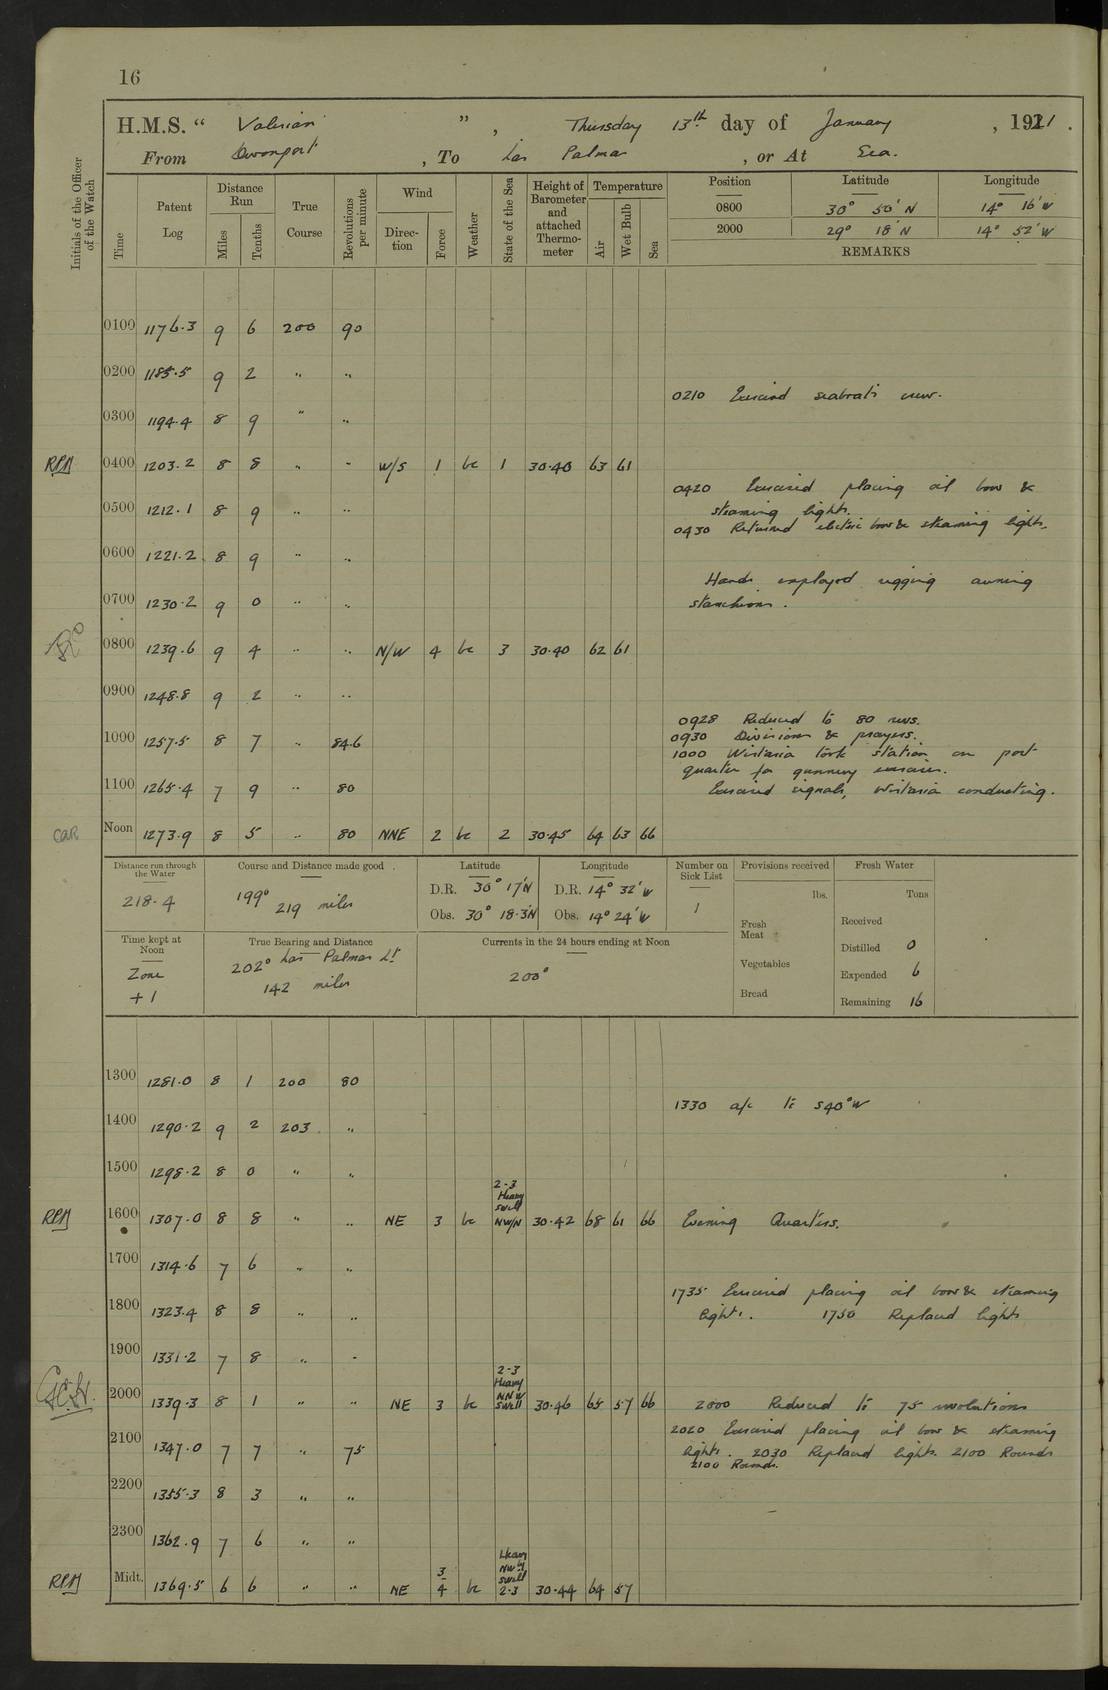 16
H.M.S. " Valerian " , Thursday 13th day of January , 1921 .
From Devonport , To Las Palmas , or At Sea.
Initials of the Officer of the Watch
Time Patent Log Distance Run Miles Tenths True Course Revolutions per minute Wind Direction Force Weather State of the Sea Height of Barometer and attached Thermometer Temperature Air Wet Bulb Sea
Position Latitude Longitude
0800 30° 50' N 14° 16' W
2000 29° 18' N 14° 52' W
REMARKS
0100 1176.3 9 6 200 90
0200 1185.5 9 2 " "
0210 Exercised seaboat's crew.
0300 1194.4 8 9 " "
RPM 0400 1203.2 8 8 " " W/S 1 bc 1 30.40 63 61
0420 Exercised placing oil bow &
steaming lights.
0500 1212.1 8 9 " "
0430 Returned electric bow & steaming lights.
0600 1221.2 8 9 " "
Hands employed rigging awning
0700 1230.2 9 0 " "
stanchions.
0800 1239.6 9 4 " " N/W 4 bc 3 30.40 62 61
0900 1248.8 9 2 " "
0928 Reduced to 80 revs.
0930 Divisions & prayers.
1000 1257.5 8 7 " 84.6
1000 Wistaria took station on port
quarter for gunnery exercises.
1100 1265.4 7 9 " 80
Exercised signals, Wistaria conducting.
CAR Noon 1273.9 8 5 " 80 NNE 2 bc 2 30.45 64 63 66
Distance run through the Water
218.4
Course and Distance made good
199° 219 miles
Latitude
D.R. 30° 17' N
Obs. 30° 18.3' N
Longitude
D.R. 14° 32' W
Obs. 14° 24' W
Number on Sick List
1
Provisions received
lbs.
Fresh Meat
Vegetables
Bread
Fresh Water
Tons
Received
Distilled 0
Expended 6
Remaining 16
Time kept at Noon
Zone
+1
True Bearing and Distance
202° Las Palmas Lt
142 miles
Currents in the 24 hours ending at Noon
200°
1300 1281.0 8 1 200 80
1330 a/c to S40°W
1400 1290.2 9 2 203 "
1500 1298.2 8 0 " "
RPM 1600 1307.0 8 8 " " NE 3 bc 2-3 Heavy swell NW/N 30.42 68 61 66 Evening Quarters.
1700 1314.6 7 6 " "
1735 Exercised placing oil bow & steaming
1800 1323.4 8 8 " "
lights. 1750 Replaced lights
1900 1331.2 7 8 " "
2000 1339.3 8 1 " " NE 3 bc 2-3 Heavy NNW swell 30.46 65 57 66 2000 Reduced to 75 revolutions
2020 Exercised placing oil bow & steaming
2100 1347.0 7 7 " 75
lights. 2030 Replaced lights. 2100 Rounds
2100 Rounds.
2200 1355.3 8 3 " "
2300 1362.9 7 6 " "
RPM Midt. 1369.5 6 6 " " NE 3-4 bc Heavy NW'ly swell 2-3 30.44 64 57